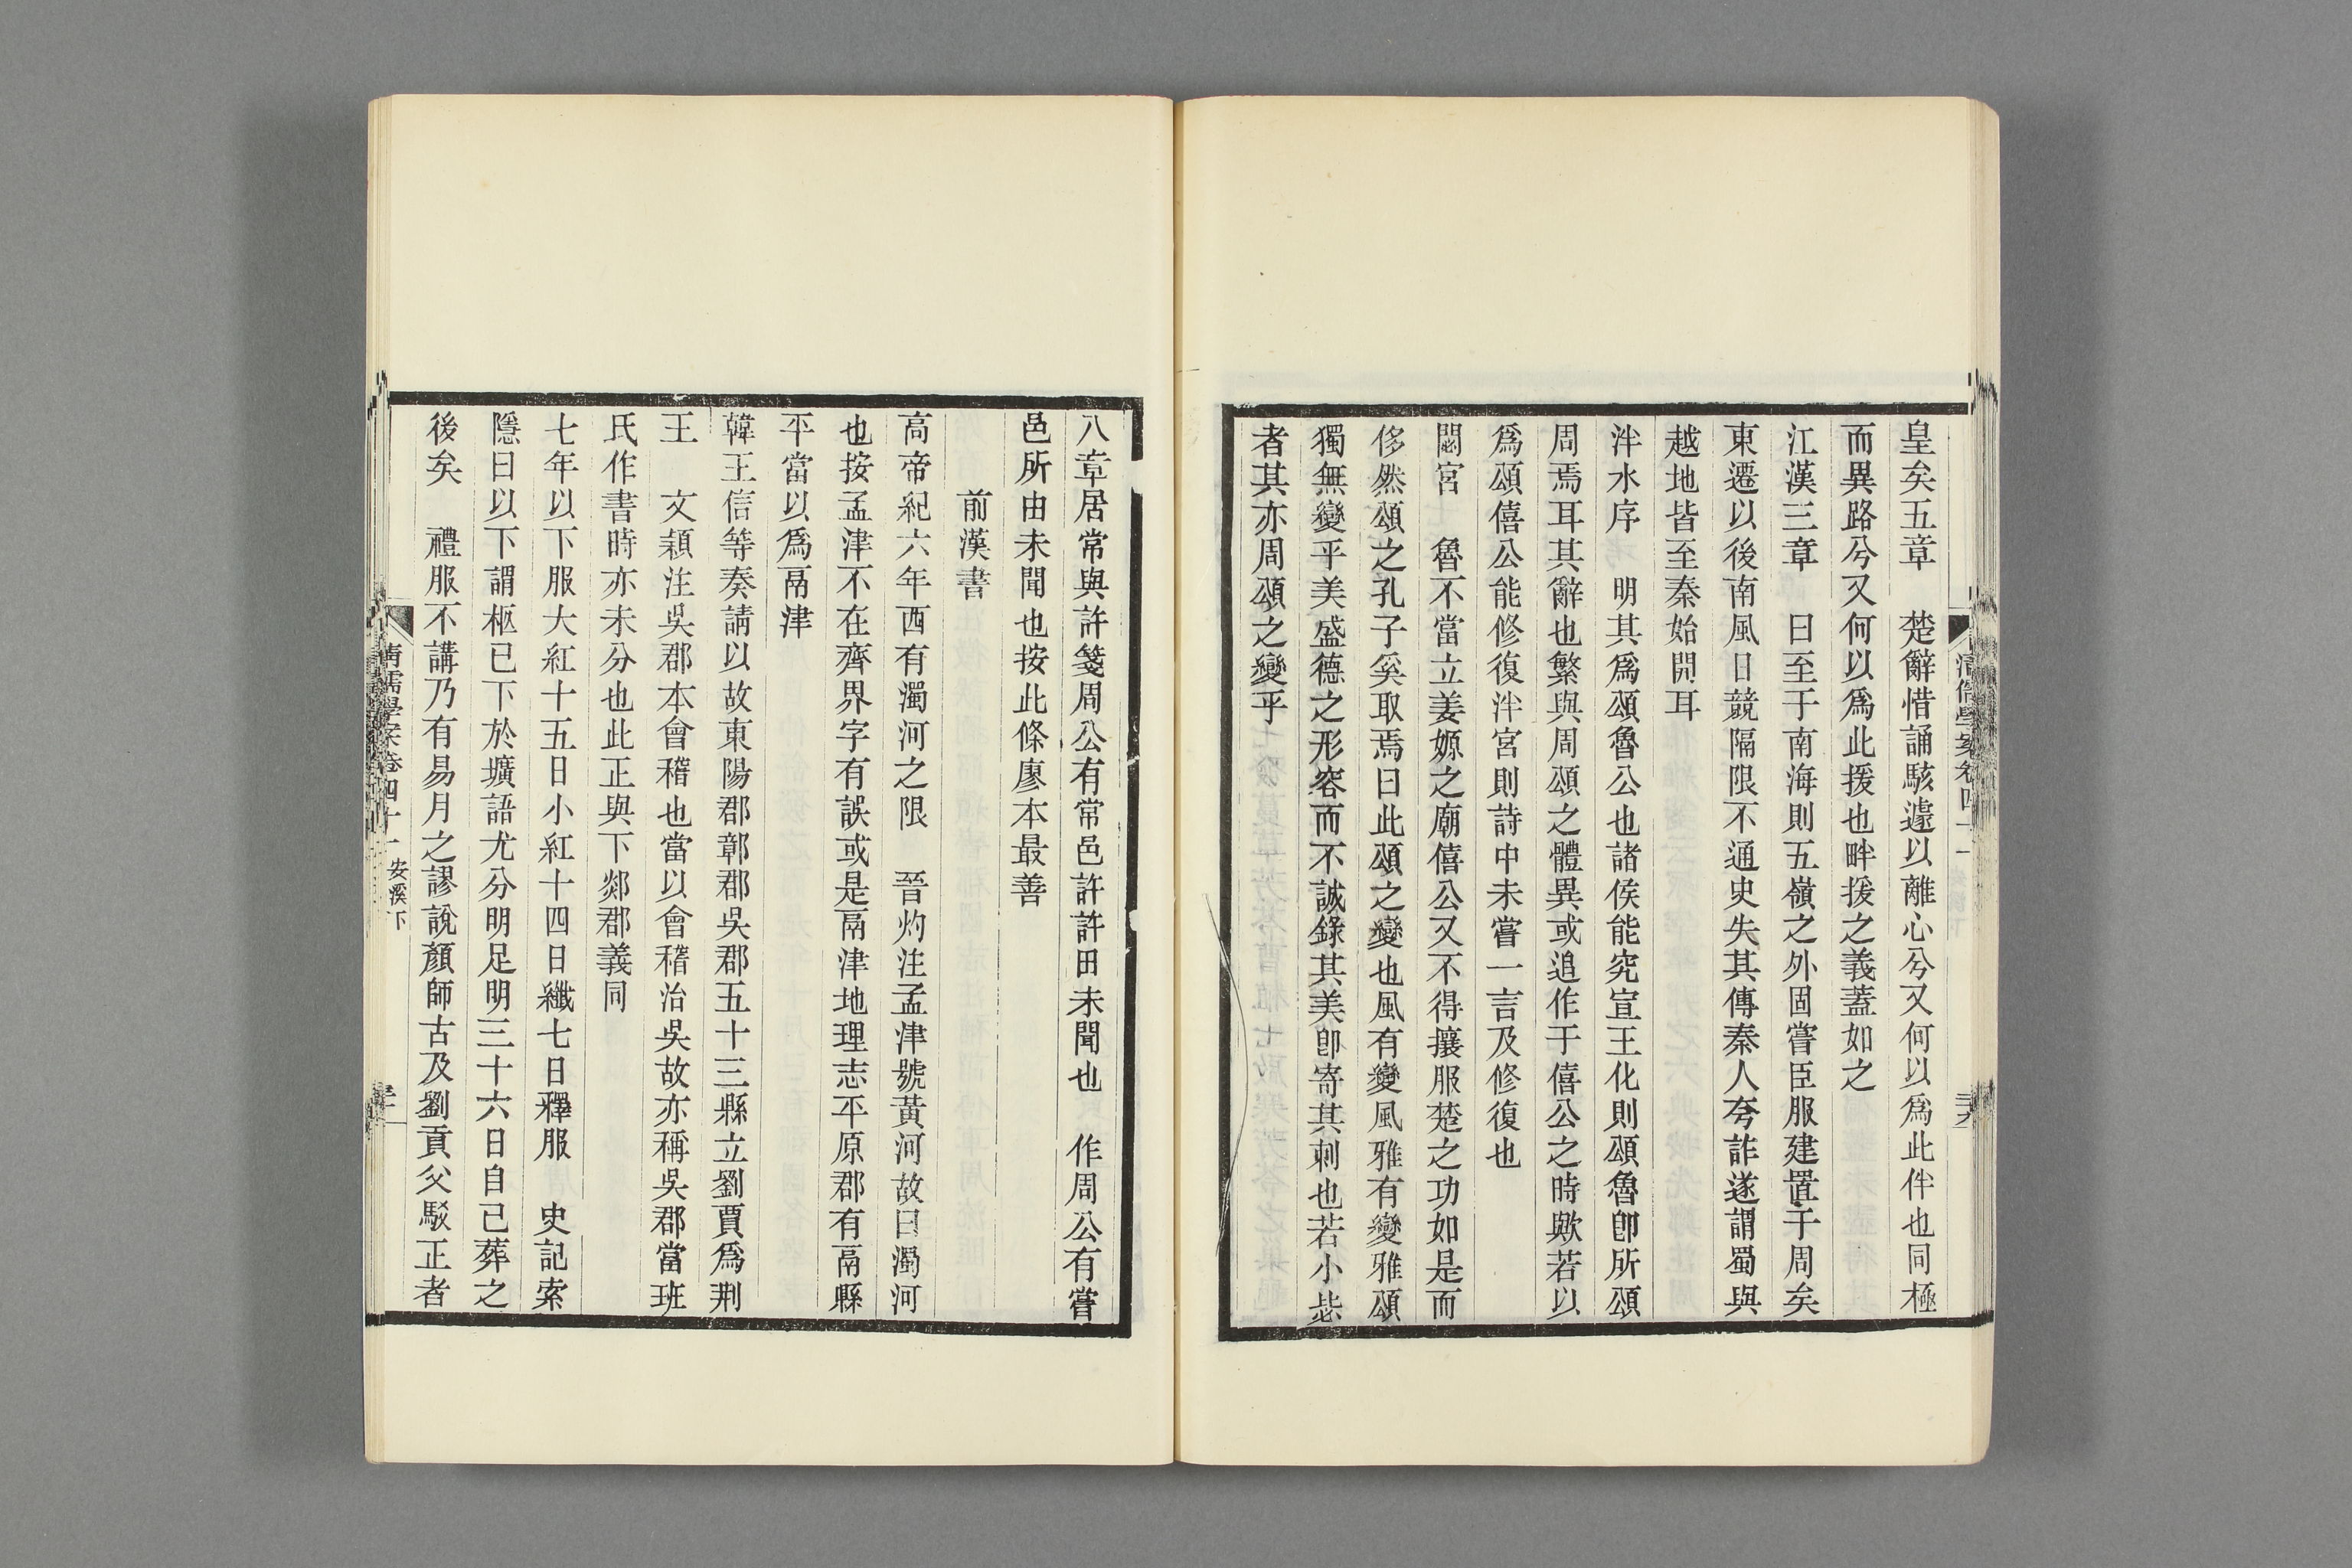 皇矣五章　楚辭惜誦駭遽以離心兮又何以爲此伴也同極
而異路兮又何以爲此援也畔援之義蓋如之
江漢三章　曰至于南海則五嶺之外固嘗臣服建置于周矣
東遷以後南風日競隔限不通史失其傳秦人夸詐遂謂蜀與
越地皆至秦始開耳
泮水序　明其爲頌魯公也諸侯能究宣王化則頌魯卽所頌
周焉耳其辭也繁與周頌之體異或追作于僖公之時歟若以
爲頌僖公能修復泮宮則詩中未嘗一言及修復也
閟宮　魯不當立姜嫄之廟僖公又不得攘服楚之功如是而
侈然頌之孔子奚取焉曰此頌之變也風有變風雅有變雅頌
獨無變乎美盛德之形容而不誠錄其美卽寄其刺也若小毖
者其亦周頌之變乎
八章居常與許箋周公有常邑許許田未聞也　作周公有嘗
邑所由未聞也按此條廖本最善
前漢書
高帝紀六年西有濁河之限　晉灼注孟津號黃河故曰濁河
也按孟津不在齊界字有誤或是鬲津地理志平原郡有鬲縣
平當以爲鬲津
韓王信等奏請以故東陽郡鄣郡吳郡五十三縣立劉賈爲荆
王　文穎注吳郡本會稽也當以會稽治吳故亦稱吳郡當班
氏作書時亦未分也此正與下郯郡義同
七年以下服大紅十五日小紅十四日纖七日釋服　史記索
隱曰以下謂柩已下於壙語尤分明足明三十六日自己葬之
後矣　禮服不講乃有易月之謬說顏師古及劉貢父駁正者
清儒學案卷四十一　安溪下